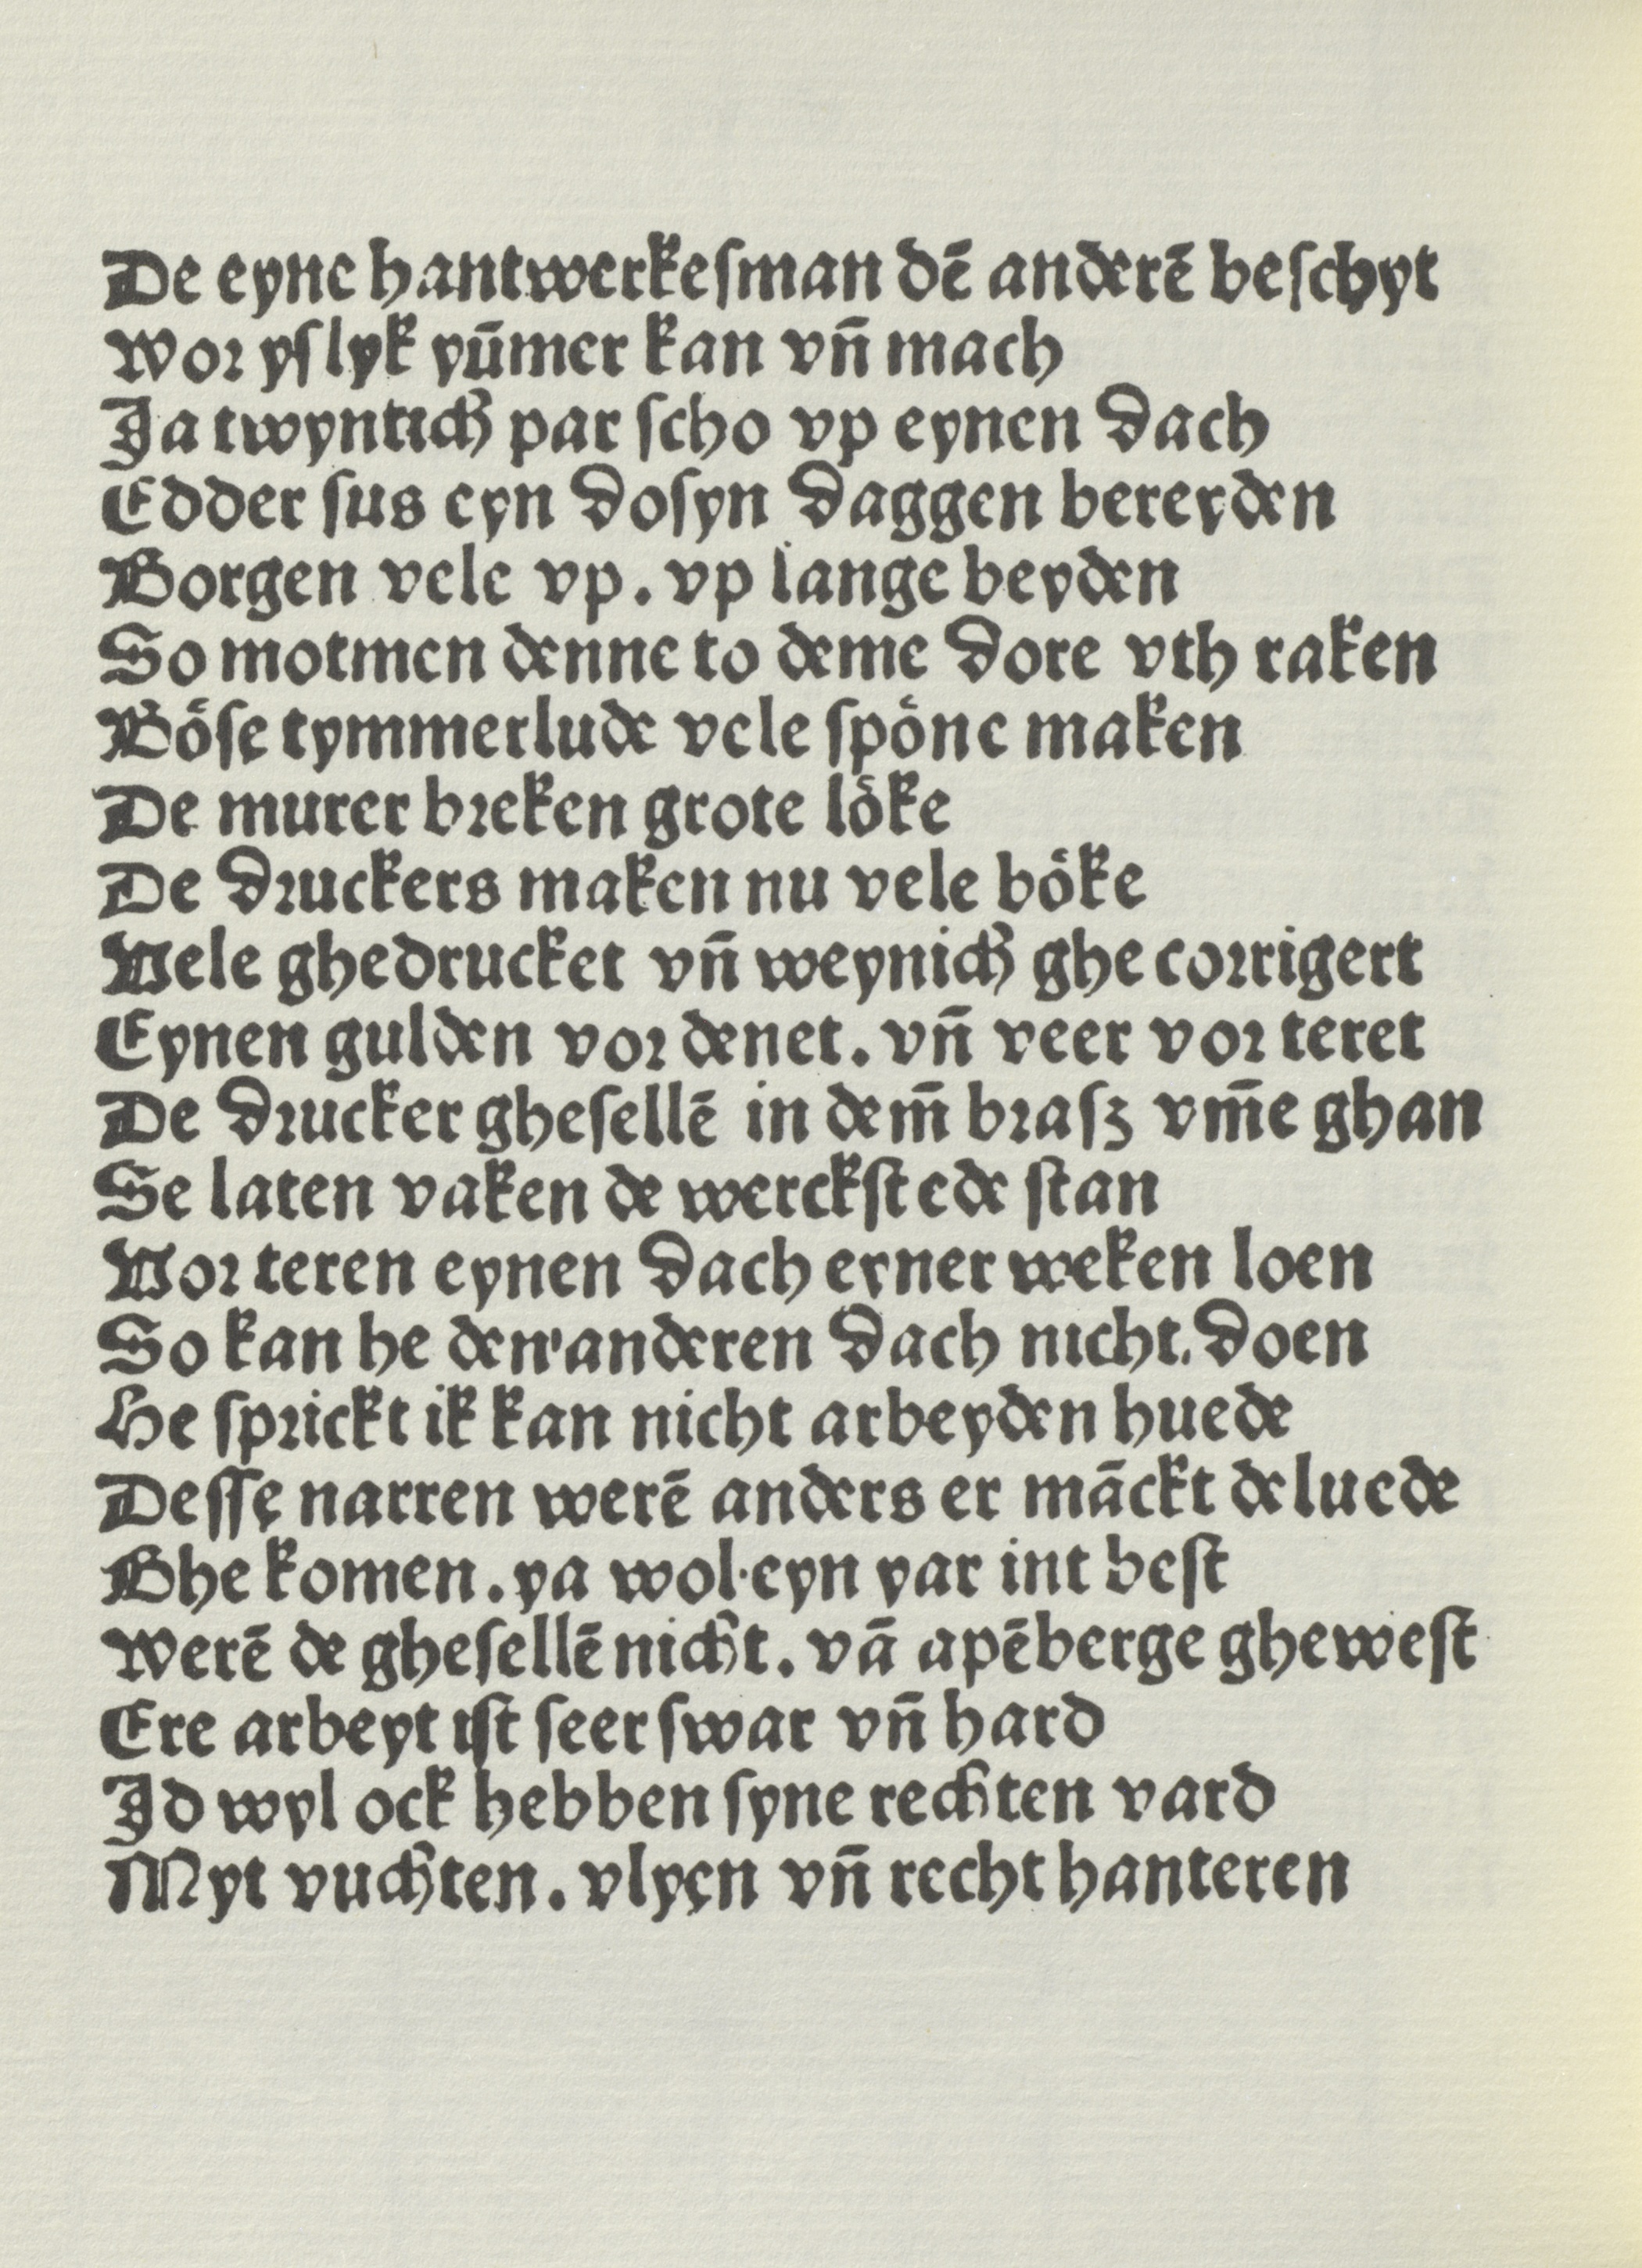 De eyne hantwerkeſman dē anderē beſchyt
Wor yſlyk yūmer kan vñ mach
Ja twyntich par ſcho vp eynen dach
Edder ſus eyn doſyn daggen bereyden
Borgen vele vp. vp lange beyden
So motmen denne to deme dore vth raken
Böſe tymmerlude vele ſpöne maken
De murer breken grote löke
De druckers maken nu vele böke
Vele ghedrucket vñ weynich ghe corrigert
Eynen gulden vor denet. vñ veer vor teret
De drucker gheſellē in dem̄ braſz vm̄e ghan
Se laten vaken de werckſtede ſtan
Vor teren eynen dach eyner weken loen
So kan he den anderen dach nicht. doen
He ſprickt ik kan nicht arbeyden huede
Deſſe narren werē anders er māckt de luede
Ghe komen. ya wol·eyn par int beſt
Werē de gheſellē nicht. vā apēberge gheweſt
Ere arbeyt iſt ſeer ſwar vñ hard
Jd wyl ock hebben ſyne rechten vard
Myt vuchten. vlyen vñ recht hanteren